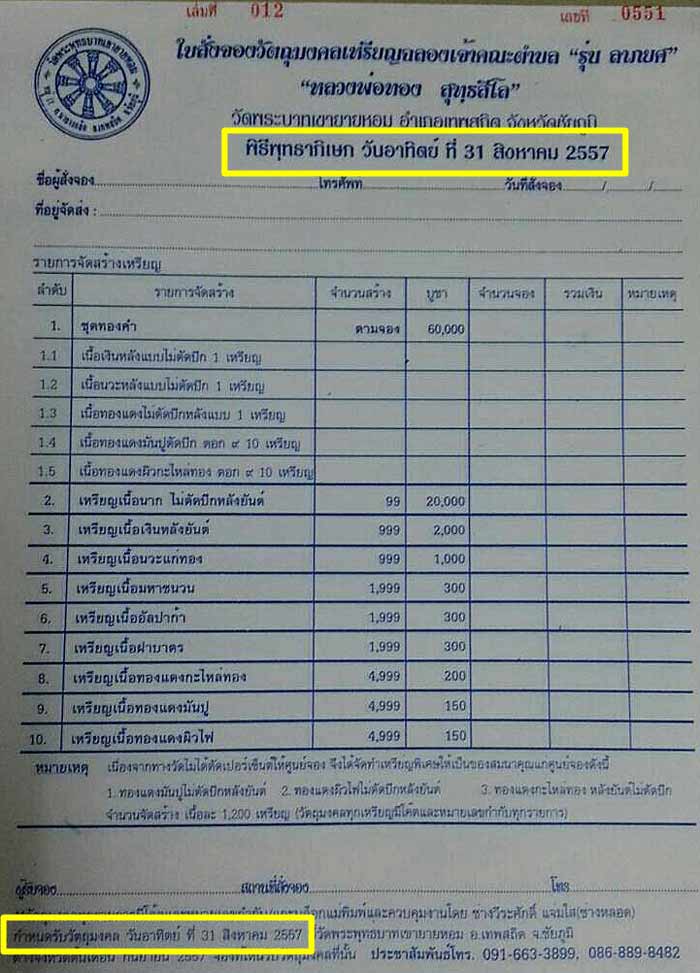 เล่มที่ 012 เลขที่ 0551
ใบสั่งจองวัตถุมงคลเหรียญฉลองเจ้าคณะตำบล “รุ่น ลาภยศ”
“หลวงพ่อทอง สุทธสีโล”
วัดพระบาทเขายายหอม อำเภอเทพสถิต จังหวัดชัยภูมิ
พิธีพุทธาภิเษก วันอาทิตย์ ที่ 31 สิงหาคม 2557
ชื่อผู้สั่งจอง โทรศัพท์ วันที่สั่งจอง / /
ที่อยู่จัดส่ง :
รายการจัดสร้างเหรียญ
ลำดับ รายการจัดสร้าง จำนวนสร้าง บูชา จำนวนจอง รวมเงิน หมายเหตุ
1. ชุดทองคำ ตามจอง 60,000
1.1 เนื้อเงินหลังแบบไม่ตัดปีก 1 เหรียญ
1.2 เนื้อนวะหลังแบบไม่ตัดปีก 1 เหรียญ
1.3 เนื้อทองแดงไม่ตัดปีกหลังแบบ 1 เหรียญ
1.4 เนื้อทองแดงมันปูตัดปีก ตอก ๙ 10 เหรียญ
1.5 เนื้อทองแดงผิวกะไหล่ทอง ตอก ๙ 10 เหรียญ
2. เหรียญเนื้อนาก ไม่ตัดปีกหลังยันต์ 99 20,000
3. เหรียญเนื้อเงินหลังยันต์ 999 2,000
4. เหรียญเนื้อนวะแก่ทอง 999 1,000
5. เหรียญเนื้อมหาชนวน 1,999 300
6. เหรียญเนื้ออัลปาก้า 1,999 300
7. เหรียญเนื้อฝาบาตร 1,999 300
8. เหรียญเนื้อทองแดงกะไหล่ทอง 4,999 200
9. เหรียญเนื้อทองแดงมันปู 4,999 150
10. เหรียญเนื้อทองแดงผิวไฟ 4,999 150
หมายเหตุ เนื่องจากทางวัดไม่ได้ตัดเปอร์เซ็นต์ให้ศูนย์จอง จึงได้จัดทำเหรียญพิเศษให้เป็นของสมนาคุณแก่ศูนย์จองดังนี้
1. ทองแดงมันปูไม่ตัดปีกหลังยันต์ 2. ทองแดงผิวไฟไม่ตัดปีกหลังยันต์ 3. ทองแดงกะไหล่ทอง หลังยันต์ไม่ตัดปีก
จำนวนจัดสร้าง เนื้อละ 1,200 เหรียญ (วัตถุมงคลทุกเหรียญมีโค๊ตและหมายเลขกำกับทุกรายการ)
ผู้รับจอง สถานที่สั่งจอง โทร
และควบคุมงานโดย ช่างวีระศักดิ์ แจ่มใส(ช่างหลอด)
กำหนดรับวัตถุมงคล วันอาทิตย์ ที่ 31 สิงหาคม 2557 ที่วัดพระพุทธบาทเขายายหอม อ.เทพสถิต จ.ชัยภูมิ
กันยายน 2557 ประชาสัมพันธ์โทร. 091-663-3899, 086-889-8482